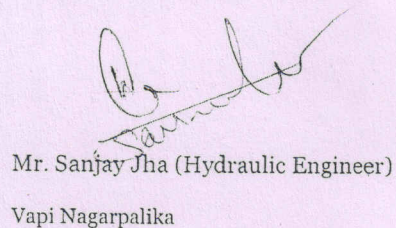 Mr. Sanjay Jha (Hydraulic Engineer)
Vapi Nagarpalika